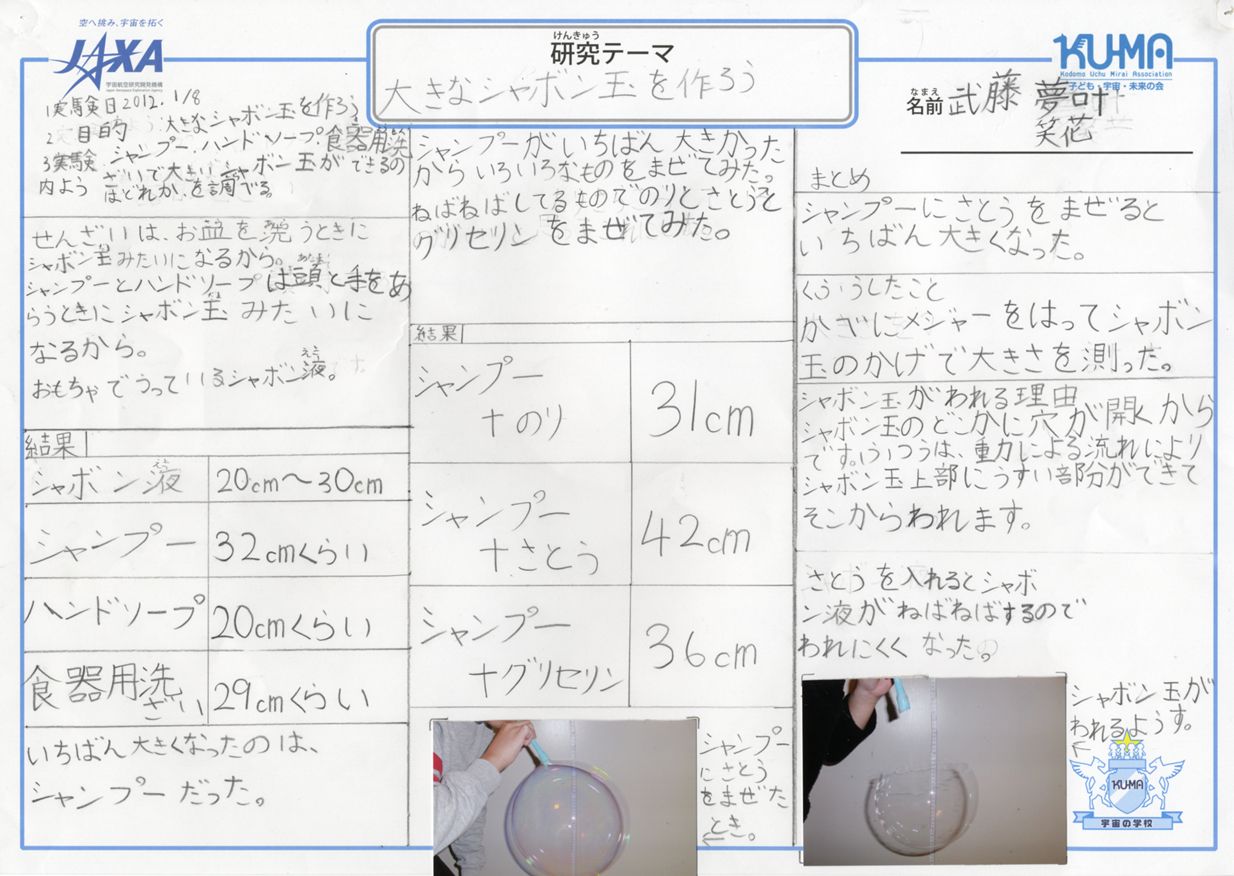 空へ挑み、宇宙を拓く
JAXA
宇宙航空研究開発機構
Japan Aerospace Exploration Agency
けんきゅう
研究テーマ
大きなシャボン玉を作ろう
KU-MA
Kodomo Uchu Mirai Association
子ども・宇宙・未来の会
なまえ
名前 武藤 夢叶
笑花
1実験日2012. 1/8
2 目的 大きなシャボン玉を作ろう
3実験内よう シャンプー・ハンドソープ・食器用洗
ざいで大きいシャボン玉ができるの
はどれか を調べる。
せんざいは、お皿を洗うときに
シャボン玉みたいになるから。
あたま
シャンプーとハンドソープは頭と手をあ
らうときにシャボン玉みたいに
なるから。
えき
おもちゃでうっているシャボン液。
結果
えき
シャボン液 20cm〜30cm
シャンプー 32cmくらい
ハンドソープ 20cmくらい
食器用洗ざい 29cmくらい
いちばん大きくなったのは、
シャンプーだった。
シャンプーがいちばん大きかった
からいろいろなものをまぜてみた。
ねばねばしてるものでのりとさとうと
グリセリンをまぜてみた。
結果
シャンプー
+のり 31cm
シャンプー
+さとう 42cm
シャンプー
+グリセリン 36cm
シャンプー
にさとう
をまぜた
とき。
まとめ
シャンプーにさとうをまぜると
いちばん大きくなった。
くふうしたこと
かべにメジャーをはってシャボン
玉のかげで大きさを測った。
シャボン玉がわれる理由
シャボン玉のどこかに穴が開くから
です。ふつうは、重力による流れにより
シャボン玉上部にうすい部分ができて
そこからわれます。
さとうを入れるとシャボ
ン液がねばねばするので
われにくくなった。
シャボン玉が
われるようす。
KU-MA
宇宙の学校